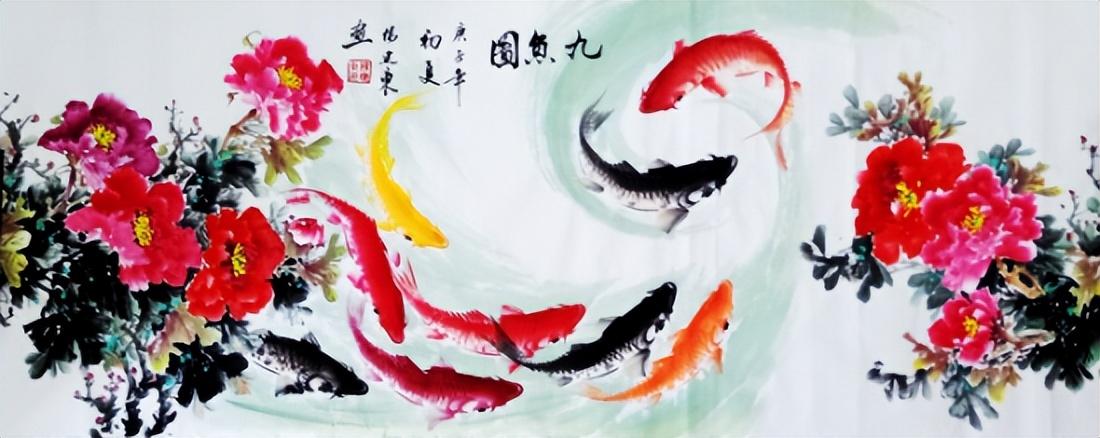 九魚圖
庚子年
初夏
楊東
畫